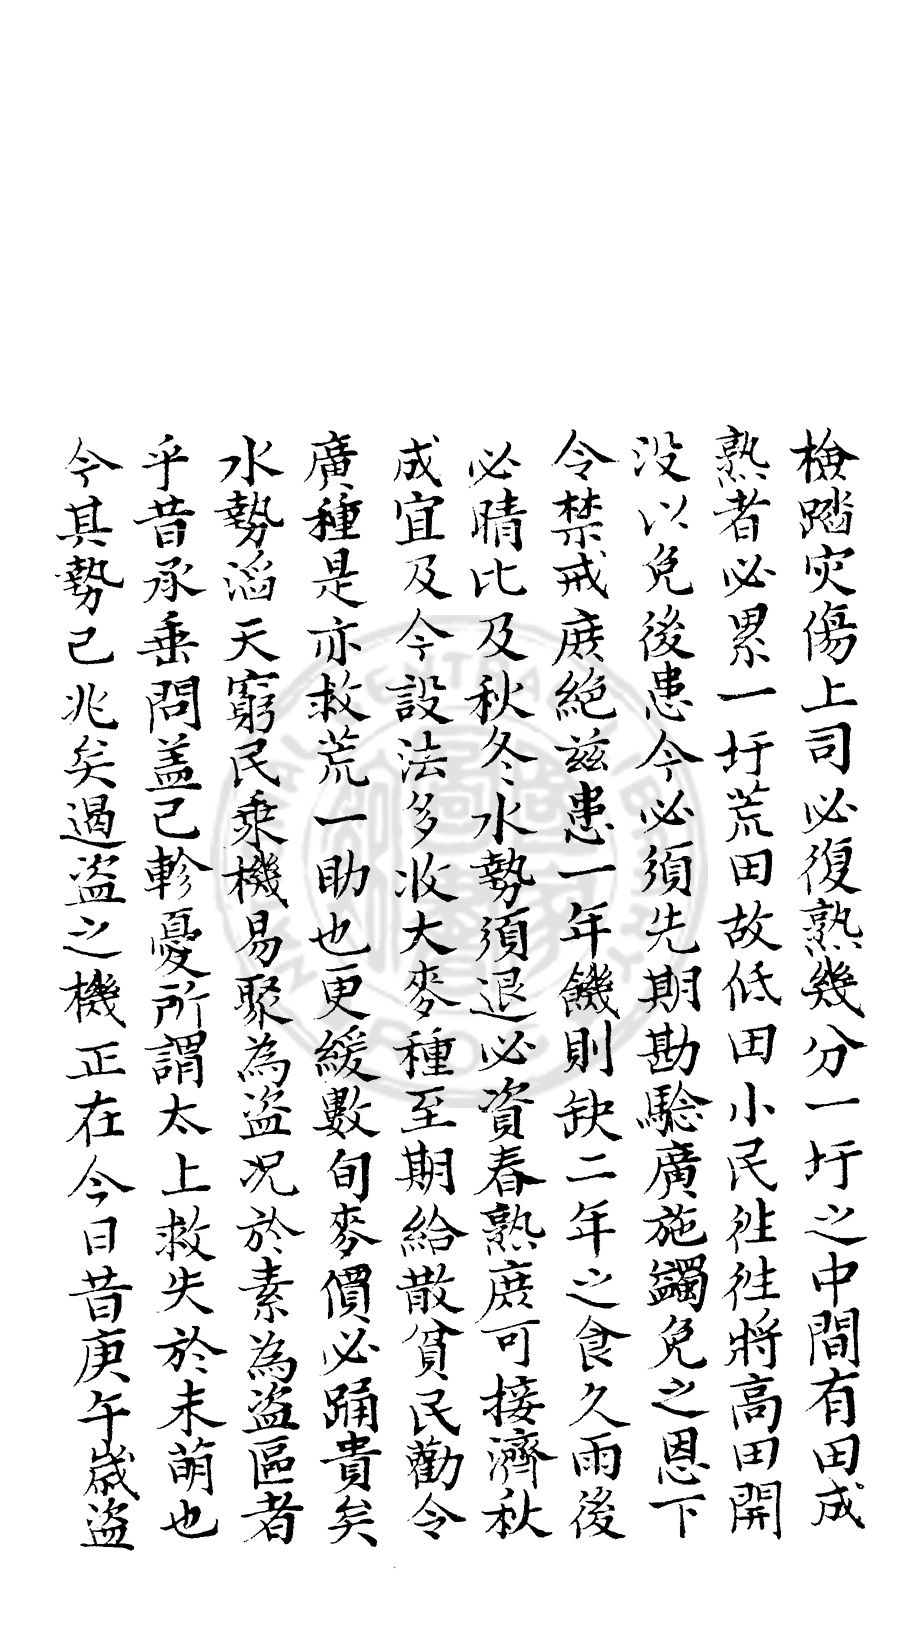 檢踏灾傷上司必復熟幾分一圩之中間有田成
熟者必累一圩荒田故低田小民徃徃將高田開
没以免後患今必須先期勘騐廣施蠲免之恩下
令禁戒庶絶兹患一年饑則缺二年之食久雨後
必晴比及秋冬水勢須退必資春熟庶可接濟秋
成宜及今設法多收大麥種至期給散貧民勸令
廣種是亦救荒一助也更緩數旬麥價必踊貴矣
水勢滔天窮民乘機易聚為盗况於素為盗區者
乎昔承垂問盖已軫憂所謂太上救失於未萌也
今其勢已兆矣遏盗之機正在今日昔庚午歲盗